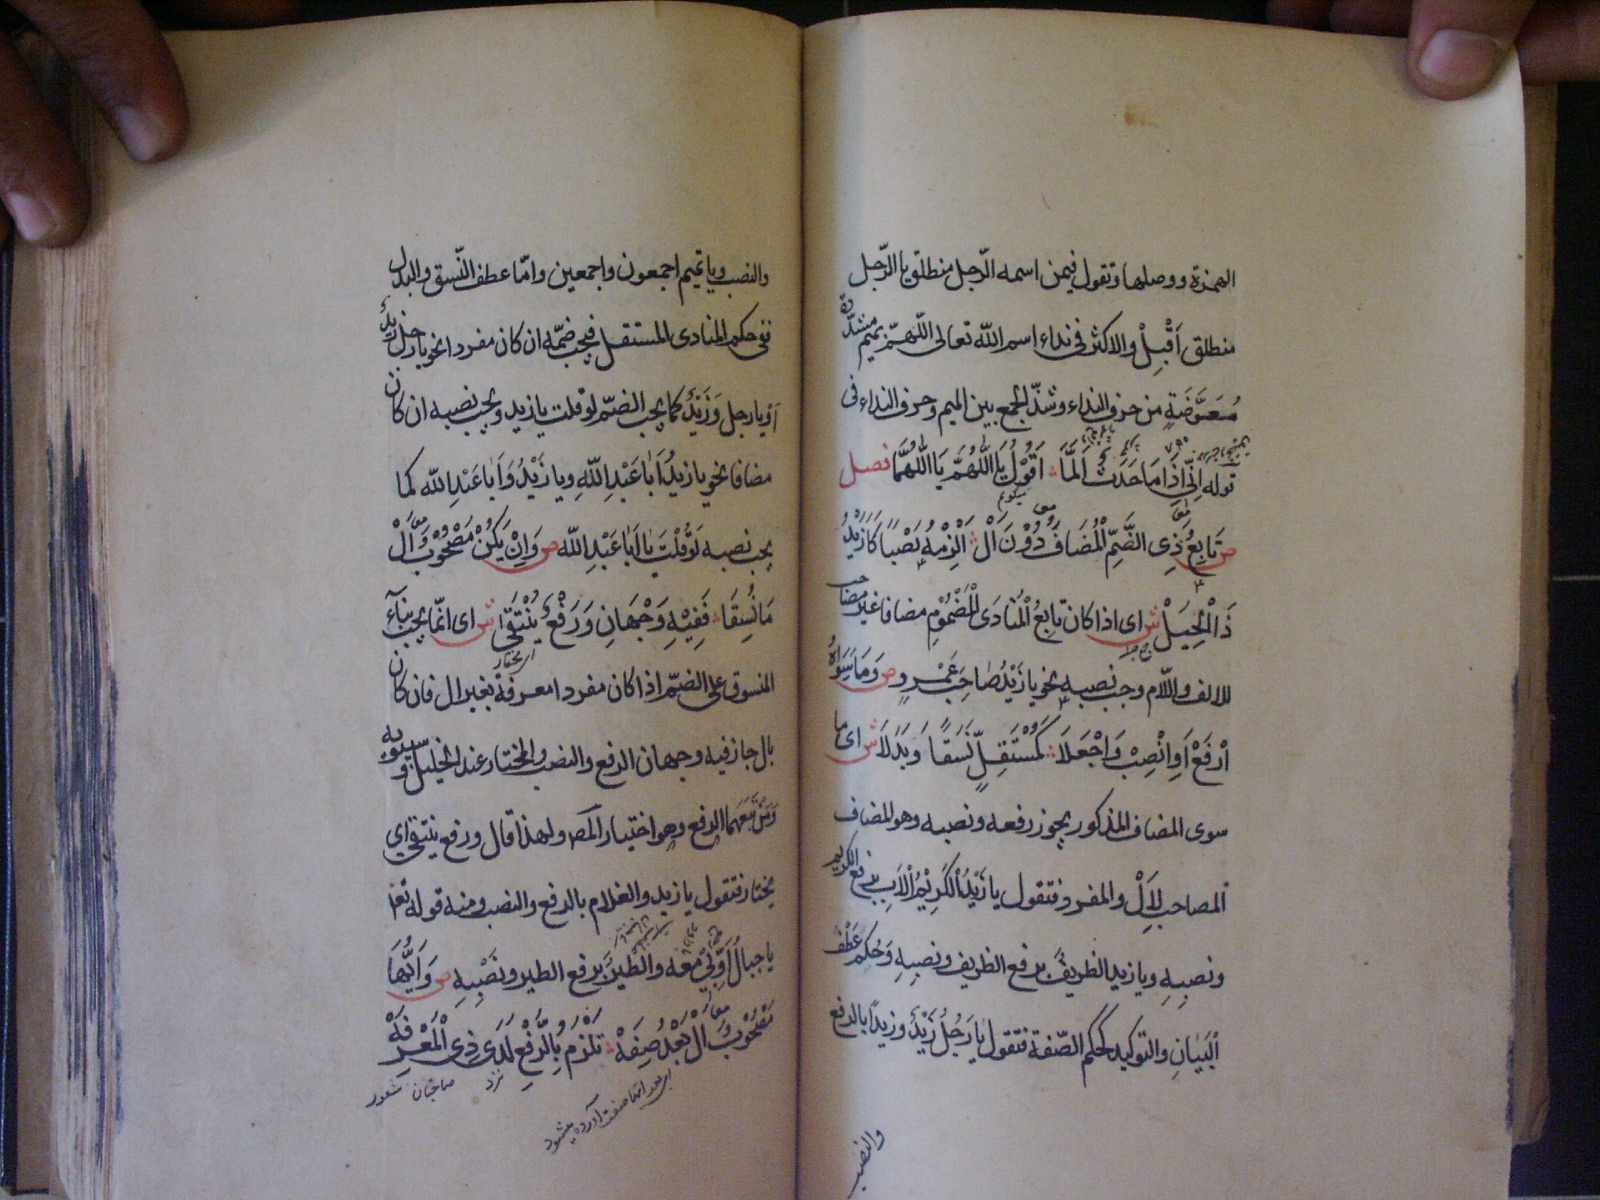 الهمزة ووصلها وتقول فيمن اسمه الرّجل منطلق يا الرّجل
منطلق اَقْبِلْ والاكثر فى نداء اسم اللّه تعالى اللّهمّ بميم مشدّدة
مُعَوَّضَةٍ من حرف النداء وشذّ الجمع بين الميم وحرف النداء فى
قوله اِنِّى اِذَا مَا حَدَثٌ اَلَمَّا اَقُوْلُ يَا اللّٰهُمَّ يَا اللّٰهُمَّا فصل
ص تَابِعُ ذِى الضَّمِّ الْمُضَافَ دُوْنَ اَلْ اَلْزِمْهُ نَصْبًا كَاَزَيْدُ
ذَا الْحِيَلْ ش اى اذا كان تابِعُ الْمُنادَى الْمَضْمُوْمِ مضافا غير مصاحب
للالف واللّام وجب نصبه نحو يا زَيْدُ صَاحِبَ عَمْرٍو ص وَمَا سِوَاهُ
اِرْفَعْ اَوِانْصِبْ وَاجْعَلَا كَمُسْتَقِلٍّ نَسَقًا وَبَدَلَا ش اى ما
سوى المضاف المذكور يجوز رفعه ونصبه وهو المضاف
المصاحب لِاَلْ والمفرد فتقول يا زَيْدُ الْكَرِيْمُ الْاَبِ برفع الكريم
ونصبِهِ ويا زيد الظريف برفع الظريف ونصبِهِ وَحُكم عَطْف
الْبَيَانِ والتوكيد كحكم الصّفة فتقول يا رَجُلُ زَيْدٌ وزيدًا بالرفع
والنصب
والنصب ويا تميم اجمعون واجمعين وامّا عطف النّسق والبدل
ففى حكم المنادى المستقل فيجب ضمّه ان كان مفردا نحو يا رجل زيدُ
اَوْ يا رجل وَزَيْدُ كما يجب الضمّ لو قلت يا زيد ويجب نصبه ان كان
مضافا نحو يا زيدُ اَبَا عَبْدِ اللّٰهِ ويا زَيْدُ وَاَبَا عَبْدِ اللّه كما
يجب نصبه لَوْ قُلْتَ يا اَبَا عَبْدِ اللّه ص وَاِنْ يَكُنْ مَصْحُوْبَ اَلْ
مَا نُسِقَا فَفِيْهِ وَجْهَانِ وَرَفْعٌ يُنْتَقَى ش اى انّما يجب بناءُ
المنسوق على الضمّ اذا كان مفردا معرفة بغير ال فان كان
بال جاز فيه وجهان الرفع والنصب والمختار عند الخليل وسيبويه
وَمَنْ تَبِعَهُمَا الرفع وهو اختيار المص ولهذا قال ورفع ينتقى اى
يختار فتقول يا زيد والغلام بالرفع والنصب ومنه قوله تعا
يا جبال اَوِّبِىْ معه والطير برفع الطير ونَصْبِهِ ص وَاَيُّهَا
مَصْحُوْبُ اَلْ بَعْدُ صِفَهْ تَلْزَمُ بِالرَّفْعِ لَدَى ذِى الْمَعْرِفَهْ
نزد صاحبان شعور